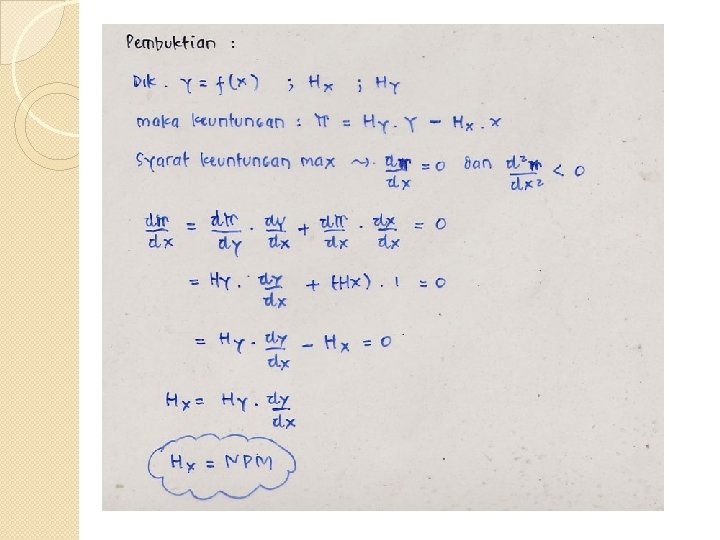 Pembuktian :
Dik . Y = f(x) ; Hx ; HY
maka keuntungan : π = HY . Y - Hx . x
Syarat keuntungan max ⤳ dπ/dx = 0 dan d²π/dx² < 0
dπ/dx = dπ/dy . dy/dx + dπ/dx . dx/dx = 0
= HY . dy/dx + (-Hx) . 1 = 0
= HY . dy/dx - Hx = 0
Hx = HY . dy/dx
Hx = NPM